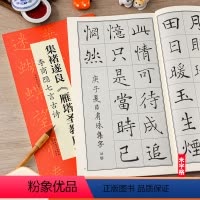 田日暖玉生煙
此情可待成追
憶只是當時已
惘然
集褚遂良《雁塔圣教序》
李商隐七言古诗
米字格
粉象优品